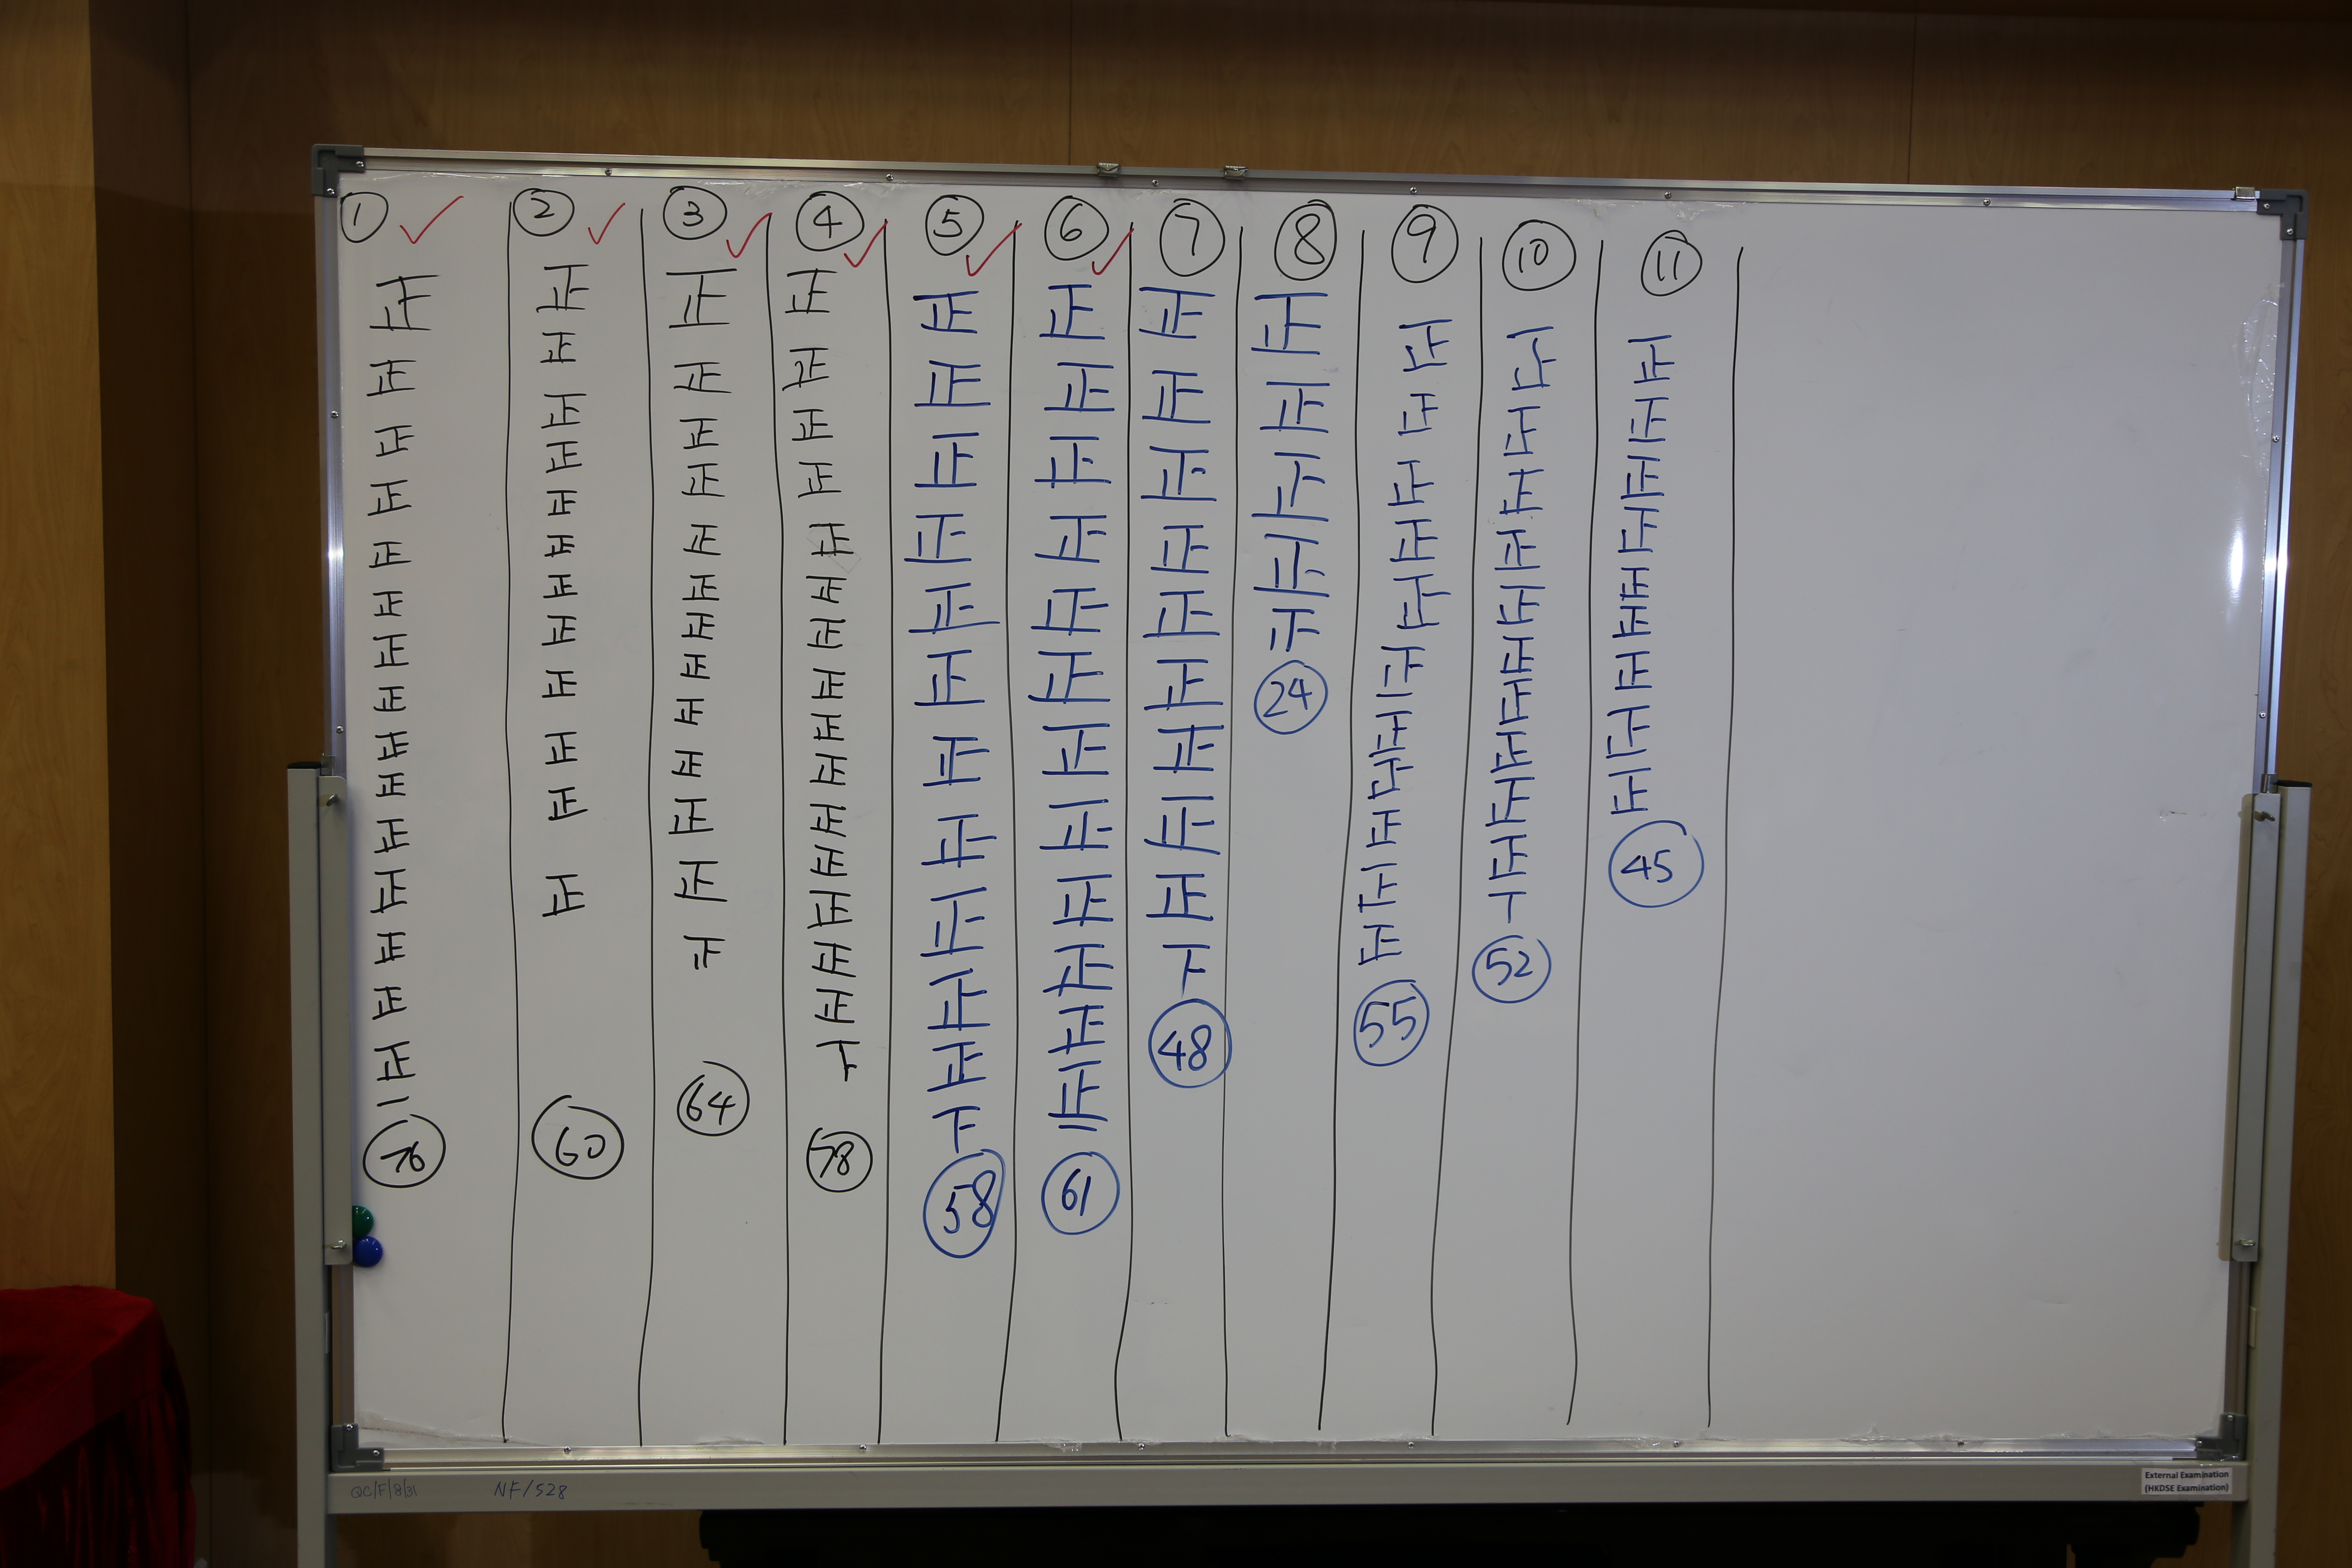 ①
正正正正正正正正正正正正正正正一
76
②
正正正正正正正正正正正正
60
③
正正正正正正正正正正正正
64
④
正正正正正正正正正正正正正正正下
78
⑤
正正正正正正正正正正正下
58
⑥
正正正正正正正正正正正正一
61
⑦
正正正正正正正正正下
48
⑧
正正正正
24
⑨
正正正正正正正正正正正
55
⑩
正正正正正正正正正正丅
52
⑪
正正正正正正正正正
45
QC/F/8/31
NF/528
External Examination
(HKDSE Examination)